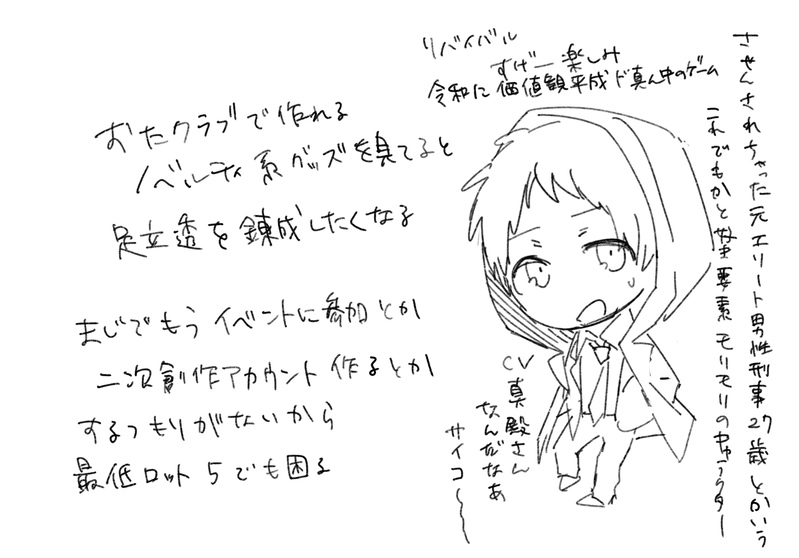 おたクラブで作れる
ノベルティ系グッズを見てると
足立透を錬成したくなる
まじでもうイベントに参加とか
二次創作アカウント作るとか
するつもりがないから
最低ロット5でも困る
リバイバル
すげー楽しみ
令和に価値観平成ド真ん中のゲーム
させんされちゃった元エリート男性刑事27歳とかいう
これでもかと好き要素モリモリのキャラクター
CV真殿さん
なんだなあ
サイコ〜〜